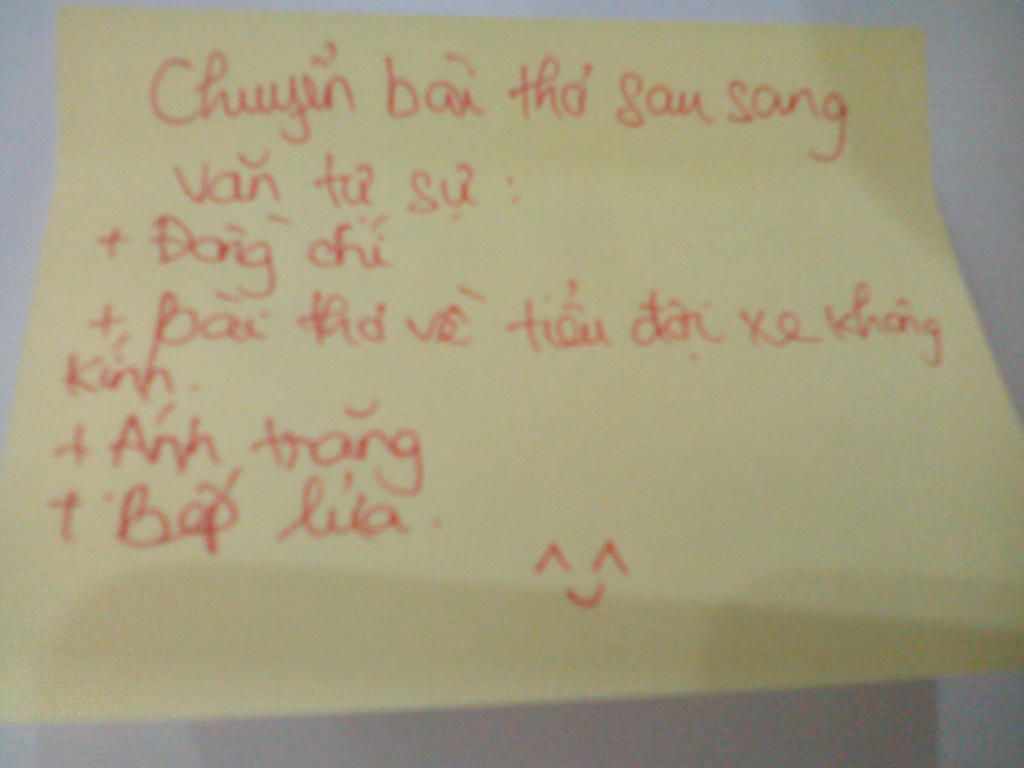 Chuyển bài thơ sau sang
văn tự sự :
+ Đồng chí
+ Bài thơ về tiểu đội xe không
kính.
+ Ánh trăng
+ Bếp lửa.
^ ^